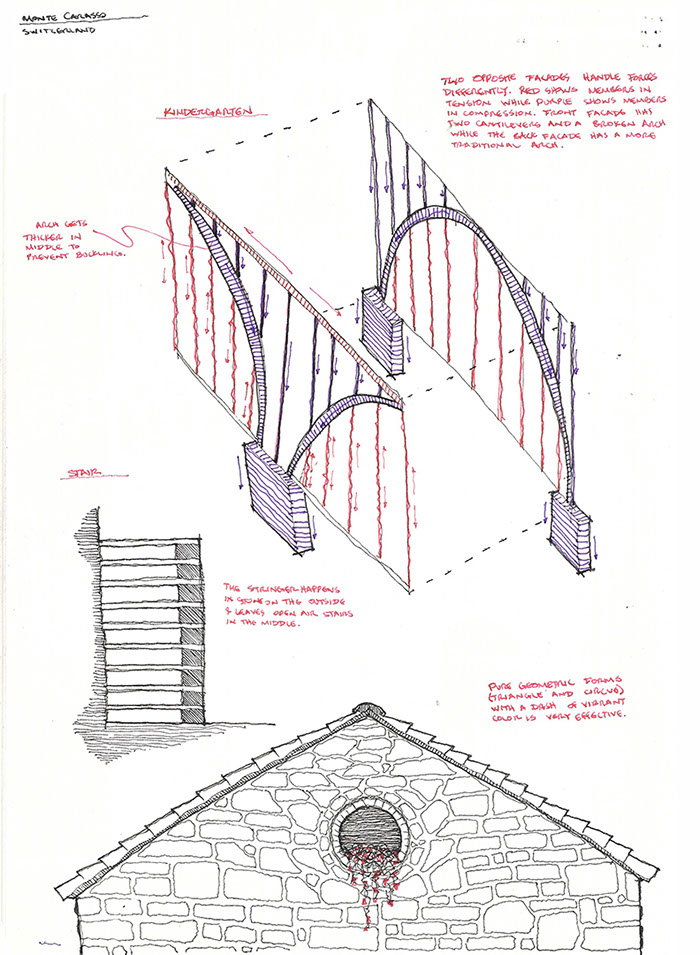 MONTE CARASSO
SWITZERLAND
TWO OPPOSITE FACADES HANDLE FORCES
DIFFERENTLY. RED SHOWS MEMBERS IN
TENSION WHILE PURPLE SHOWS MEMBERS
IN COMPRESSION. FRONT FACADE HAS
TWO CANTILEVERS AND A BROKEN ARCH
WHILE THE BACK FACADE HAS A MORE
TRADITIONAL ARCH.
KINDERGARTEN
ARCH GETS
THICKER IN
MIDDLE TO
PREVENT BUCKLING.
STAIR
THE STRINGER HAPPENS
IN STONE ON THE OUTSIDE
& LEAVES OPEN AIR STAIRS
IN THE MIDDLE.
PURE GEOMETRIC FORMS
(TRIANGLE AND CIRCLE)
WITH A DASH OF VIBRANT
COLOR IS VERY EFFECTIVE.